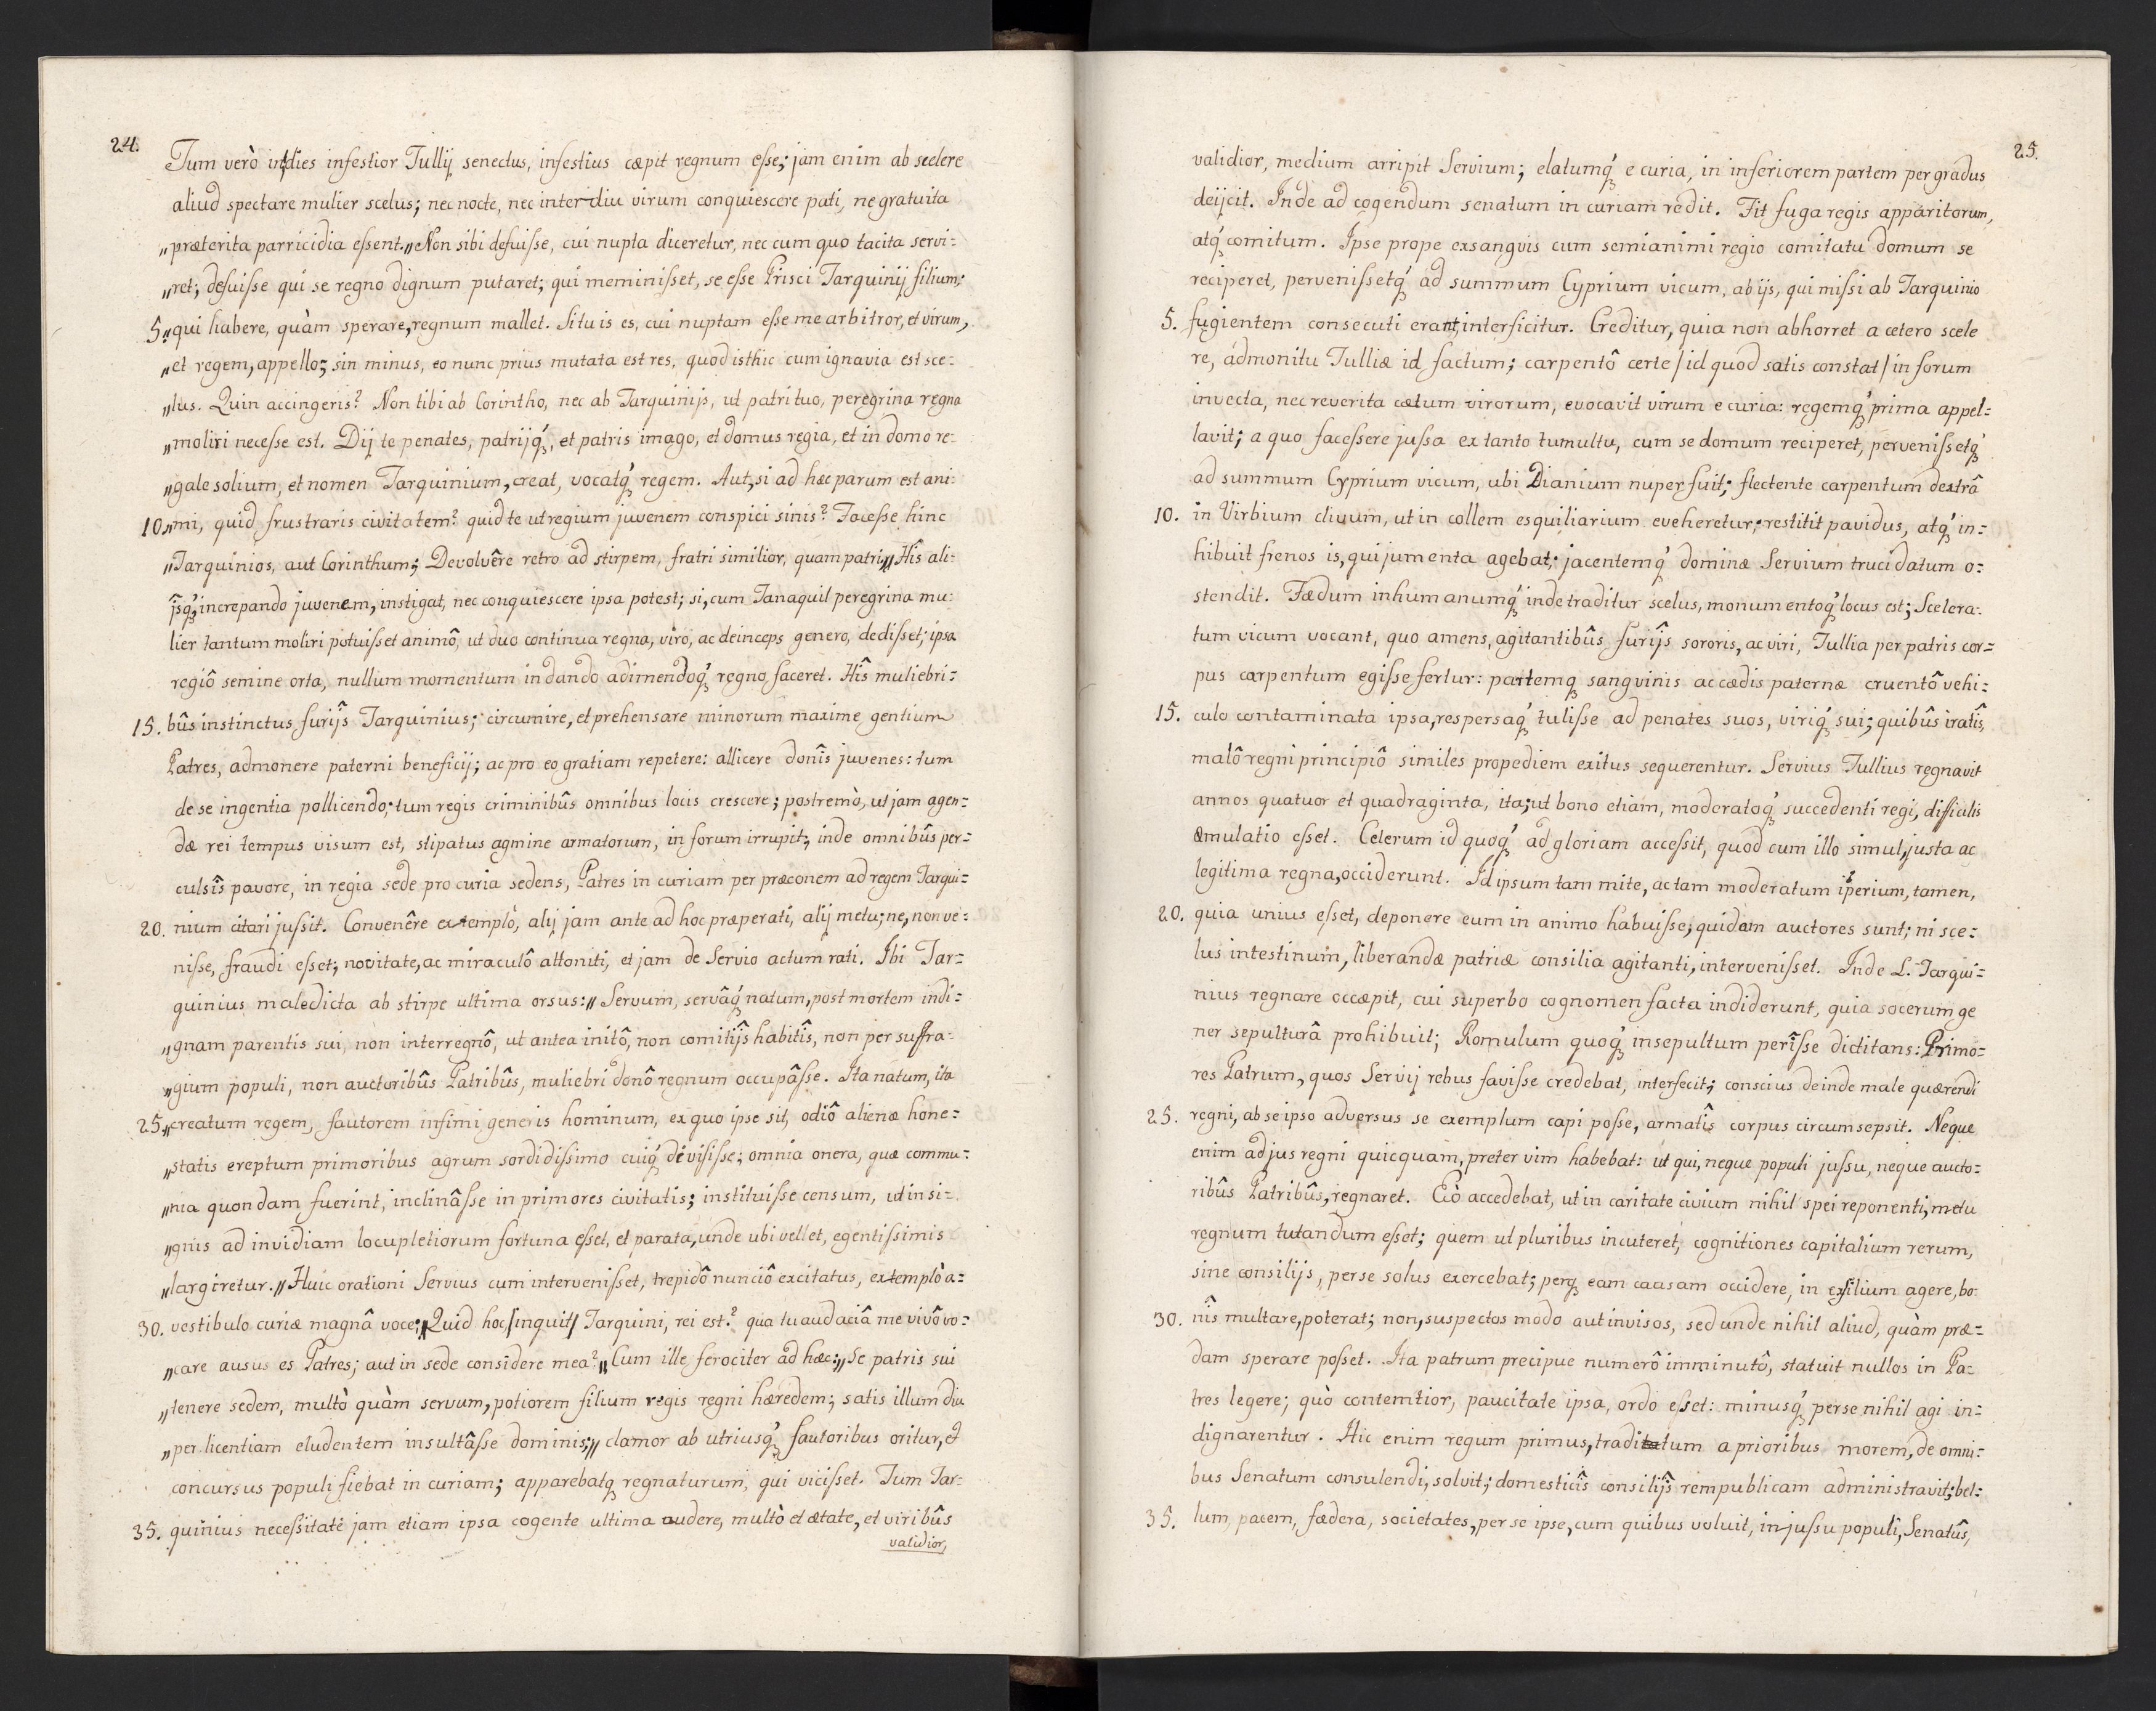 24.
Tum verò in dies infestior Tullij senectus, infestius cæpit regnum esse; jam enim ab scelere
aliud spectare mulier scelus; nec nocte, nec inter diu virum conquiescere pati, ne gratuita
„præterita parricidia essent. „Non sibi defuisse, cui nupta diceretur, nec cum quo tacita servi=
„ret; defuisse qui se regno dignum putaret; qui meminisset, se esse Prisci Tarquinij filium;
5. „qui habere, quàm sperare, regnum mallet. Si tu is es, cui nuptam esse me arbitror, et virum,
„et regem, appello; sin minus, eo nunc prius mutata est res, quod isthic cum ignavia est sce=
„lus. Quin accingeris? Non tibi ab Corintho, nec ab Tarquinijs, ut patri tuo, peregrina regna
„moliri necesse est. Dij te penates, patrijq́ꝫ, et patris imago, et domus regia, et in domo re=
„gale solium, et nomen Tarquinium, creat, vocatq́ꝫ regem. Aut, si ad hæc parum est ani=
10. „mi, quid frustraris civitatem? quid te ut regium juvenem conspici sinis? Facesse hinc
„Tarquinios, aut Corinthum; Devolvêre retro ad stirpem, fratri similior, quam patri„ Hîs ali=
ĵsq́ꝫ, increpando juvenem, instigat, nec conquiescere ipsa potest; si, cum Tanaquil peregrina mu=
lier tantum moliri potuisset animô, ut duo continua regna, viro, ac deinceps genero, dedisset; ipsa
regiô semine orta, nullum momentum in dando adimendoq́ꝫ regno faceret. Hîs muliebri=
15. bûs instinctus furiĵs Tarquinius; circumire, et prehensare minorum maxime gentium
Patres, admonere paterni beneficij; ac pro eo gratiam repetere: allicere donîs juvenes: tum
de se ingentia pollicendo; tum regis criminibûs omnibus locis crescere; postremò, ut jam agen=
dæ rei tempus visum est, stipatus agmine armatorum, in forum irrupit; inde omnibûs per=
culsîs pavore, in regia sede pro curia sedens, Patres in curiam per præconem ad regem Tarqui=
20. nium citari jussit. Convenêre extemplò, alij jam ante ad hoc præperati, alij metu; ne, non ve=
nisse, fraudi esset; novitate, ac miraculô attoniti, et jam de Servio actum rati. Ibi Tar=
quinius maledicta ab stirpe ultima orsus: „Servum, servâq́ꝫ natum, post mortem indi=
„gnam parentis sui, non interregnô, ut antea initô, non comitiĵs habitîs, non per suffra=
„gium populi, non auctoribûs Patribûs, muliebri donô regnum occupâsse. Ita natum, ita
25. „creatum regem, fautorem infimi generis hominum, ex quo ipse sit, odiô alienæ hone=
„statis ereptum primoribus agrum sordidissimo cuiq́ꝫ divisisse; omnia onera, quæ commu=
„nia quondam fuerint, inclinâsse in primores civitatis; instituisse censum, ut insi=
„gnis ad invidiam locupletiorum fortuna esset, et parata, unde ubi vellet, egentissimis
„largiretur. „ Huic orationi Servius cum intervenisset, trepidô nunciô excitatus, extemplò a=
30. vestibulo curiæ magnâ voce; „Quid hoc /inquit/ Tarquini, rei est? qua tu audaciâ me vivô vo=
„care ausus es Patres; aut in sede considere mea? „ Cum ille ferociter ad hæc: „ Se patris sui
„tenere sedem, multò quàm servum, potiorem filium regis regni hæredem; satis illum diu
„per licentiam eludentem insultâsse dominis; „ clamor ab utriusq́ꝫ fautoribus oritur, et
concursus populi fiebat in curiam; apparebatqꝫ regnaturum, qui vicisset. Tum Tar=
35. quinius necessitate jam etiam ipsa cogente ultima audere, multò et ætate, et viribûs
validior,
25.
validior, medium arripit Servium; elatumq́ꝫ e curia, in inferiorem partem per gradus
deijcit. Inde ad cogendum senatum in curiam redit. Fit fuga regis apparitorum,
atq́ꝫ comitum. Ipse prope exsanguis cum semianimi regio comitatu domum se
reciperet, pervenissetq́ꝫ ad summum Cyprium vicum, ab ijs, qui missi ab Tarquinio
5. fugientem consecuti erant, interficitur. Creditur, quia non abhorret a cetero scele
re, admonitu Tulliæ id factum; carpentô certe /id quod satis constat/ in forum
invecta, nec reverita cætum virorum, evocavit virum e curia: regemq́ꝫ prima appel=
lavit; a quo facessere jussa ex tanto tumultu, cum se domum reciperet, pervenissetq́ꝫ
ad summum Cyprium vicum, ubi Dianium nuper fuit; flectente carpentum dextrâ
10. in Virbium clivum, ut in collem esquiliarium eveheretur; restitit pavidus, atq́ꝫ in=
hibuit frenos is, qui jumenta agebat; jacentemq́ꝫ dominæ Servium trucidatum o=
stendit. Fædum inhumanumq́ꝫ inde traditur scelus, monumentoq́ꝫ locus est; Scelera=
tum vicum vocant, quo amens, agitantibûs furiĵs sororis, ac viri, Tullia per patris cor=
pus carpentum egisse fertur: partemqꝫ sangvinis ac cædis paternæ cruentô vehi=
15. culo contaminata ipsa, respersaq́ꝫ tulisse ad penates suos, viriq́ꝫ sui; quibûs iratîs,
malô regni principiô similes propediem exitus sequerentur. Servius Tullius regnavit
annos quatuor et quadraginta, ita; ut bono etiam, moderatoq́ꝫ succedenti regi, difficilis
æmulatio esset. Ceterum id quoq́ꝫ ad gloriam accessit, quod cum illo simul, justa ac
legitima regna, occiderunt. Id ipsum tam mite, ac tam moderatum iperium, tamen,
20. quia unius esset, deponere eum in animo habuisse; quidam auctores sunt; ni sce=
lus intestinum, liberandæ patriæ consilia agitanti, intervenisset. Inde L. Tarqui=
nius regnare occæpit, cui superbo cognomen facta indiderunt, quia socerum ge
ner sepulturâ prohibuit; Romulum quoq́ꝫ insepultum perîsse dictitans: Primo=
res Patrum, quos Servij rebus favisse credebat, interfecit; conscius deinde male quærendi
25. regni, ab se ipso adversus se exemplum capi posse, armatîs corpus circumsepsit. Neque
enim ad jus regni quicquam, preter vim habebat: ut qui, neque populi jussu, neque aucto=
ribûs Patribûs, regnaret. Eò accedebat, ut in caritate civium nihil spei reponenti, metu
regnum tutandum esset; quem ut pluribus incuteret, cognitiones capitalium rerum,
sine consilijs, per se solus exercebat; perqꝫ eam caasam occidere, in exsilium agere, bo=
30. nîs multare, poterat; non, suspectos modo aut invisos, sed unde nihil aliud, quàm præ=
dam sperare posset. Ita patrum precipue numerô imminutô, statuit nullos in Pa=
tres legere; quò contemtior, paucitate ipsa, ordo esset: minusq́ꝫ per se nihil agi in=
dignarentur. Hic enim regum primus, traditatum a prioribus morem, de omni=
bus Senatum consulendi, solvit; domesticîs consiliĵs rempublicam administravit; bel=
35. lum, pacem, fædera, societates, per se ipse, cum quibus voluit, injussu populi, Senatûs,